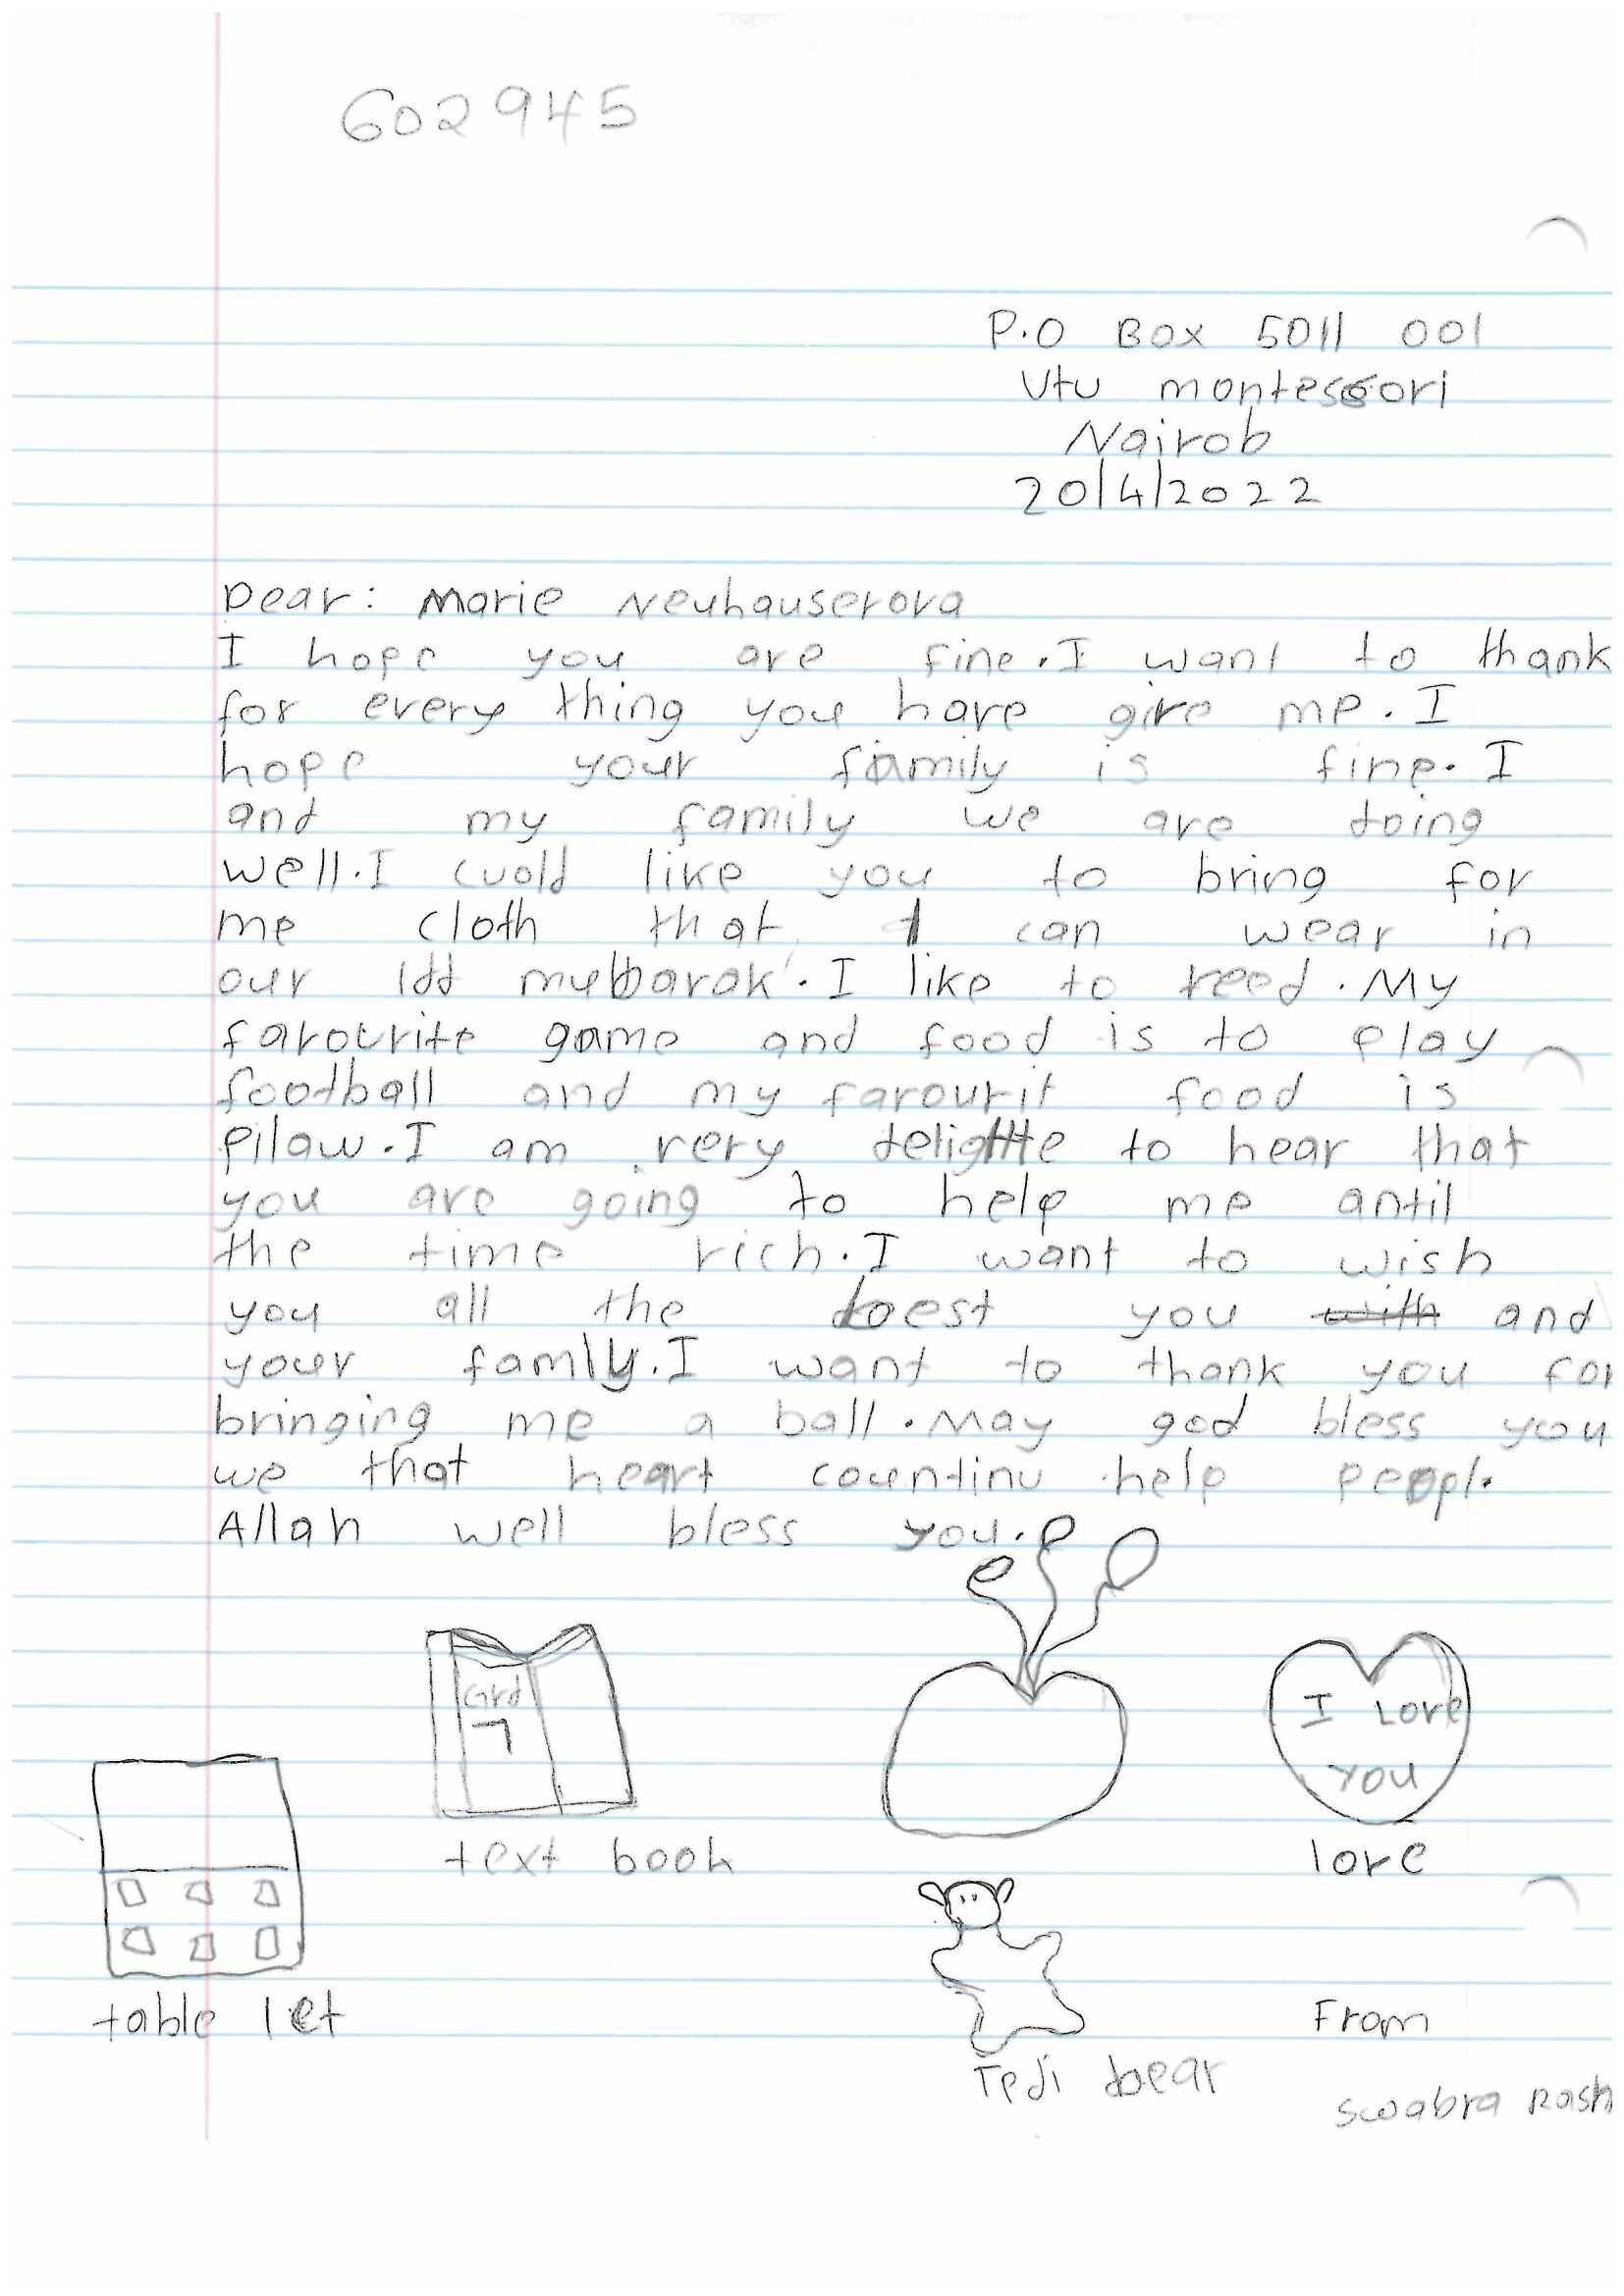 602945
P.O Box 5011 001
Utu montessori
Nairob
20/4/2022
Dear: Marie Neuhauserova
I hope you are fine. I want to thank
for every thing you have give me. I
hope your family is fine. I
and my family we are doing
well. I cuold like you to bring for
me cloth that I can wear in
our Idd mubbarak. I like to reed. My
favourite game and food is to play
football and my favourit food is
pilaw. I am very delightte to hear that
you are going to help me antil
the time rich. I want to wish
you all the best you with and
your famly. I want to thank you for
bringing me a ball. May god bless you
we that heart countinu help peopl.
Allah well bless you.
Grd
7
I Love
you
text book
love
table let
From
Tedi bear
Swabra Rash